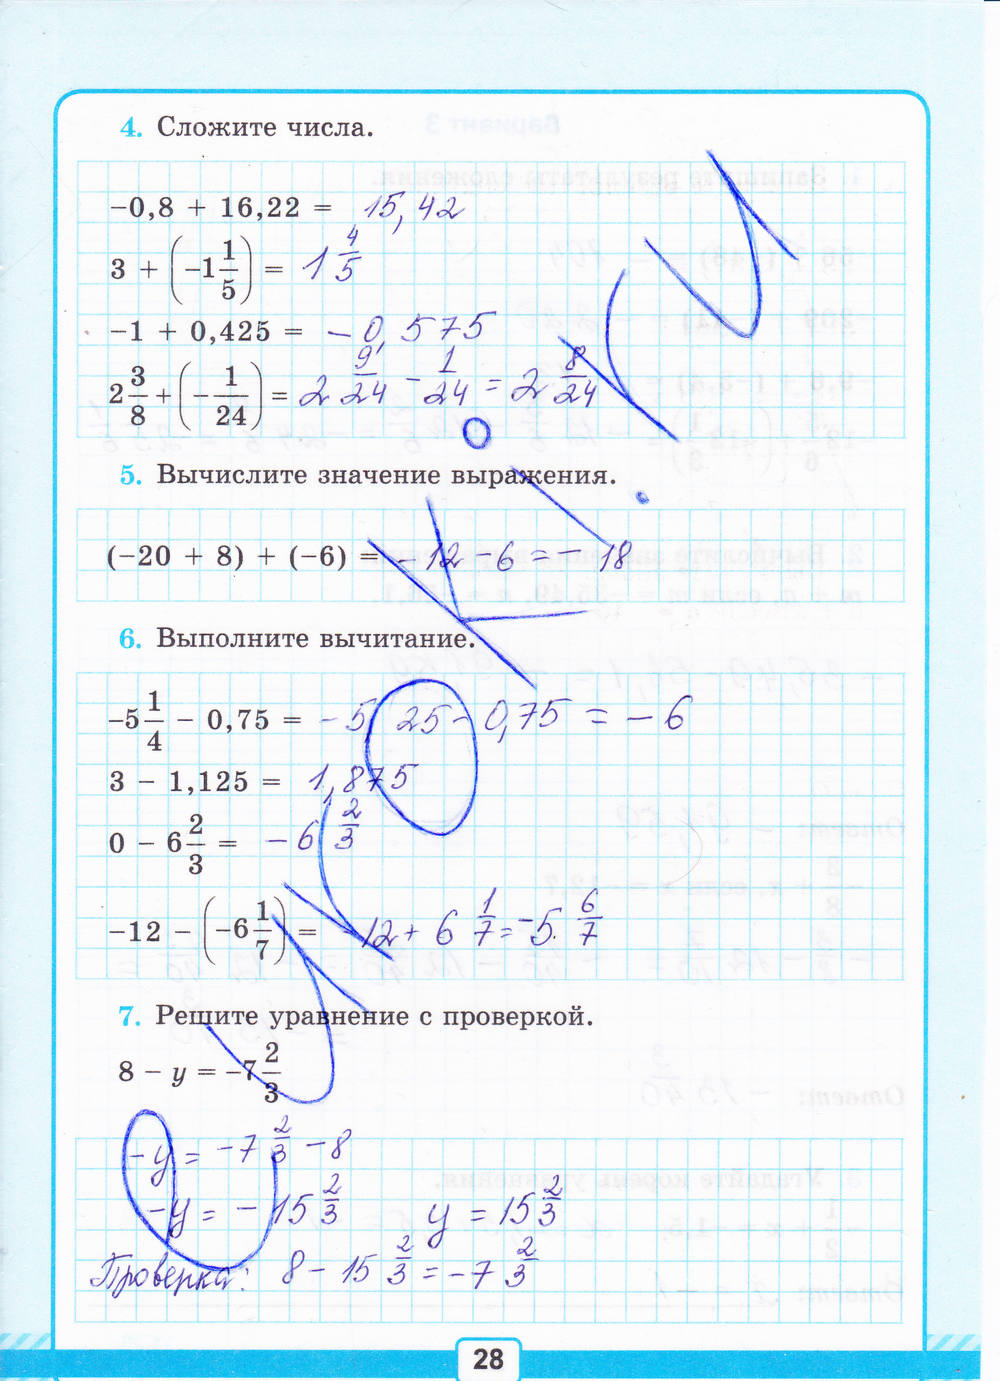 4. Сложите числа.
−0,8 + 16,22 = 15,42
3 + (−1 1/5) = 1 4/5
−1 + 0,425 = −0,575
2 3/8 + (−1/24) = 2 9/24 − 1/24 = 2 8/24
5. Вычислите значение выражения.
(−20 + 8) + (−6) = −12 − 6 = −18
6. Выполните вычитание.
−5 1/4 − 0,75 = −5,25 − 0,75 = −6
3 − 1,125 = 1,875
0 − 6 2/3 = −6 2/3
−12 − (−6 1/7) = −12 + 6 1/7 = −5 6/7
7. Решите уравнение с проверкой.
8 − y = −7 2/3
−y = −7 2/3 − 8
−y = −15 2/3 y = 15 2/3
Проверка: 8 − 15 2/3 = −7 2/3
28